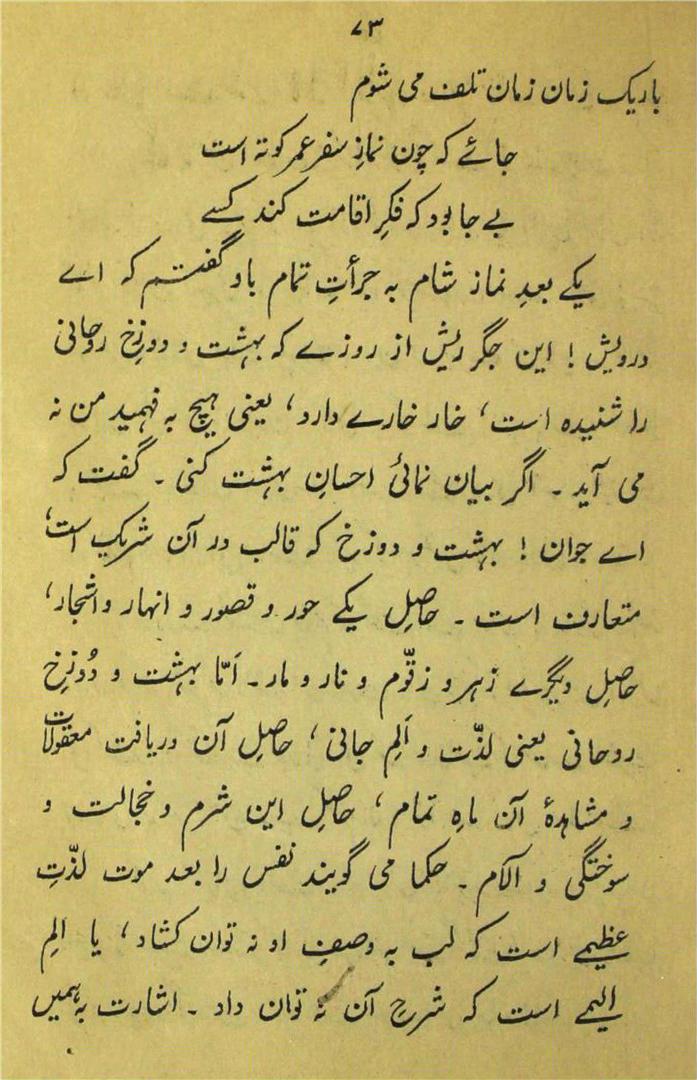 ۷۳
باریک زمان زمان تلف می شوم
جائے کہ چون نمازِ سفر عمر کوتہ است
بے جا بود کہ فکرِ اقامت کند کسے
یکے بعدِ نماز شام بہ جرأتِ تمام باو گفتم کہ اے
درویش ! این جگر ریش از روزے کہ بہشت و دوزخِ روحانی
را شنیدہ است، خار خارے دارد، یعنی ہیچ بہ فہمید من نہ
می آید ۔ اگر بیان نمائی احسانِ بہشت کنی ۔ گفت کہ
اے جوان ! بہشت و دوزخ کہ قالب در آن شریک است،
متعارف است ۔ حاصلِ یکے حور و قصور و انہار و اشجار،
حاصلِ دیگرے زہر و زقّوم و نار و مار ۔ اَمّا بہشت و دُوزخِ
روحانی یعنی لذّت و اَلمِ جانی، حاصلِ آن دریافت معقولات
و مشاہدۂ آن ماہِ تمام، حاصلِ این شرم و خجالت و
سوختگی و آلام ۔ حکما می گویند نفس را بعد موت لذّتِ
عظیمے است کہ لب بہ وصفِ او نہ توان کشاد، یا المِ
الیمے است کہ شرحِ آن نہ توان داد ۔ اشارت بہ ہمیں